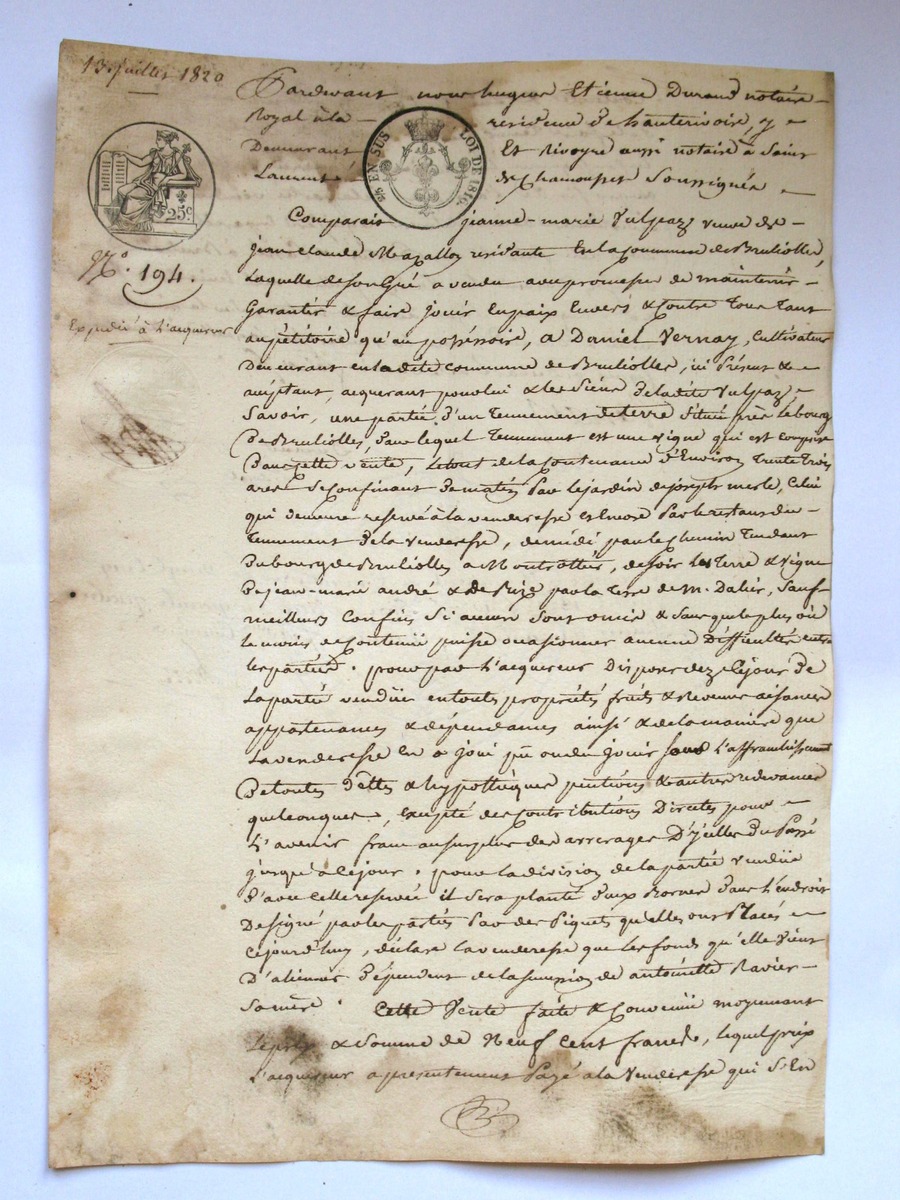 13. juillet 1820
Pardevant nous hugues Etienne Durand notaire
Royal à la residence de hauterivoire, y
Demeurant Et Rivoyre aussi notaire à Saint
Laurent de Chamousset Soussignés
25c EN SUS LOI DE 1816
25c
N.º 194.
Expedié à l'acquereur
Comparait jeanne-marie Vulpaz veuve de
jean claude Mazallon residante En la Commune de Brulliolles,
Laquelle de son Gré a vendu avec promesse de maintenir
Garantir & faire jouir En paix Envers & Contre Tous Tant
au pétitoire qu'au possessoire, a Daniel Vernay, Cultivateur
Demeurant en la dite commune de Brulliolles, ici Présent &
acceptant, acquerant pour lui & les Siens De la dite Vulpaz
Savoir, une partie d'un Tennement de terre Situé près le bourg
De Brulliolles, dans lequel Tennement est une vigne qui est comprise
Dans cette vente, le tout de la Contenance d'Environ Trente Trois
ares Se Confinant De matin Par le jardin de joseph merle, Celui
qui demeure reservé à la venderesse & Encore Par le restant du
Tennement De la Venderesse, de midi par le Chemin Tendant
Du bourg de Brulliolles a Montrottier, de soir les Terre & Vigne
De jean-marie andré & de Bize par la Terre de m. Dalin, Sauf
meilleurs Confins Si aucuns Sont omis & Sans que le plus où
le moins de Contenüe puisse occasionner aucune Difficulté entre
les parties. pour par l'acquereur Disposer dez Ce jour De
La partie vendüe en toute propriété fruits & revenus aisances
appartenances & dépendances ainsi & de la maniere que
La venderesse en a joui pu ou du jouir sous l'affranchissement
De toutes dettes & hypothèques pentions & autres redevances
quelconques, Excepté des Contributions Directes pour
L'avenir franc au surplus des arrerages D'jcelles du Passé
jusqu'à Ce jour. pour la division de la partie Vendüe
D'avec Celle reservée il Sera planté Deux Bornes Dans l'Endroit
Designé par les parties Par des Piquets qu'elles ont Placés
Cejourd'huy, déclare la venderesse que les fonds qu'elle Vient
D'aliener Dépendent de la succession de antoinette Ravier
Sa mère. Cette Vente faite & Convenüe moyennant
Le prix & Somme de Neuf Cent francs, lequel prix
L'acquereur a présentement Payé a la Venderesse qui S'En